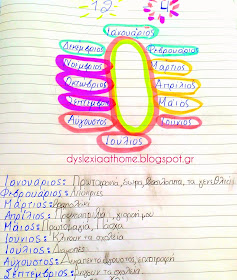 12
Ιανουάριος
Δεκέμβριος
Φεβρουάριος
Νοέμβριος
Μάρτιος
Οκτώβριος
Απρίλιος
Σεπτέμβριος
Μάιος
Αύγουστος
Ιούνιος
Ιούλιος
dyslexiaathome.blogspot.gr
Ιανουάριος: Πρωτοχρονιά, δώρα, βασιλόπιτα, τα γενέθλια
Φεβρουάριος: Απόκριες
Μάρτιος:
Απρίλιος: Πρωταπριλιά, γιορτή μου
Μάιος: Πρωτομαγιά, Πάσχα
Ιούνιος: Κλείνουν τα σχολεία
Ιούλιος: Διακοπές
Αύγουστος: Δεκαπενταύγουστος, επιστροφή
Σεπτέμβριος: ανοίγουν τα σχολεία